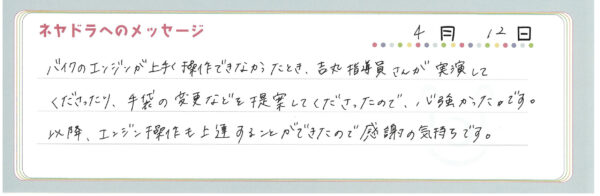 ネヤドラへのメッセージ
4月 12日
バイクのエンジンが上手く操作できなかったとき、吉丸指導員さんが実演して
くださったり、手袋の変更などを提案してくださったので、心強かったです。
以降、エンジン操作も上達することができたので感謝の気持ちです。